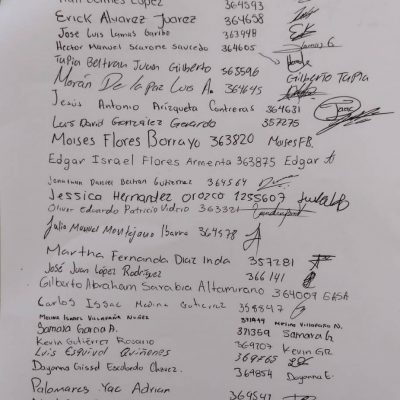 364593
Erick Alvarez Juarez 364658
Jose Luis Lamas Garibo 363448 EK
Hector Manuel Scarome Saucedo 364605 James G
Tapia Beltran Juan Gilberto 363596
Morán De la paz Luis A. 364645 Gilberto Tapia
Jesús Antonio Arizqueta Contreras 364631
Luis David González Gerardo 357275
Moises Flores Borrayo 363820 Moises F.B.
Edgar Israel Flores Armenta 363875 Edgar
Jonathan Daniel Beltran Gutierrez 364564
Jessica Hernandez orozco 1255607
Oliver Eduardo Patricio Vidrio 363321
Julio Manuel Montejano Ibarra 364578
Martha Fernanda Diaz Inda 357281
José Juan López Rodríguez 366141
Gilberto Abraham Sarabia Altamirano 364009 GASA
Carlos Issac Medina Gutierrez 358847
Molina Isabel Villafaña Nuñez 371949 Molina Villafaña N.
Samara Garcia A. 371359 Samara G
Kevin Gutiérrez Rosario 369707 Kevin GR
Luis Esquivel Quiñones 369765
Dayanna Gissel Escobedo Chavez 364854 Dayanna E.
Palomares Yac Adrian 364541